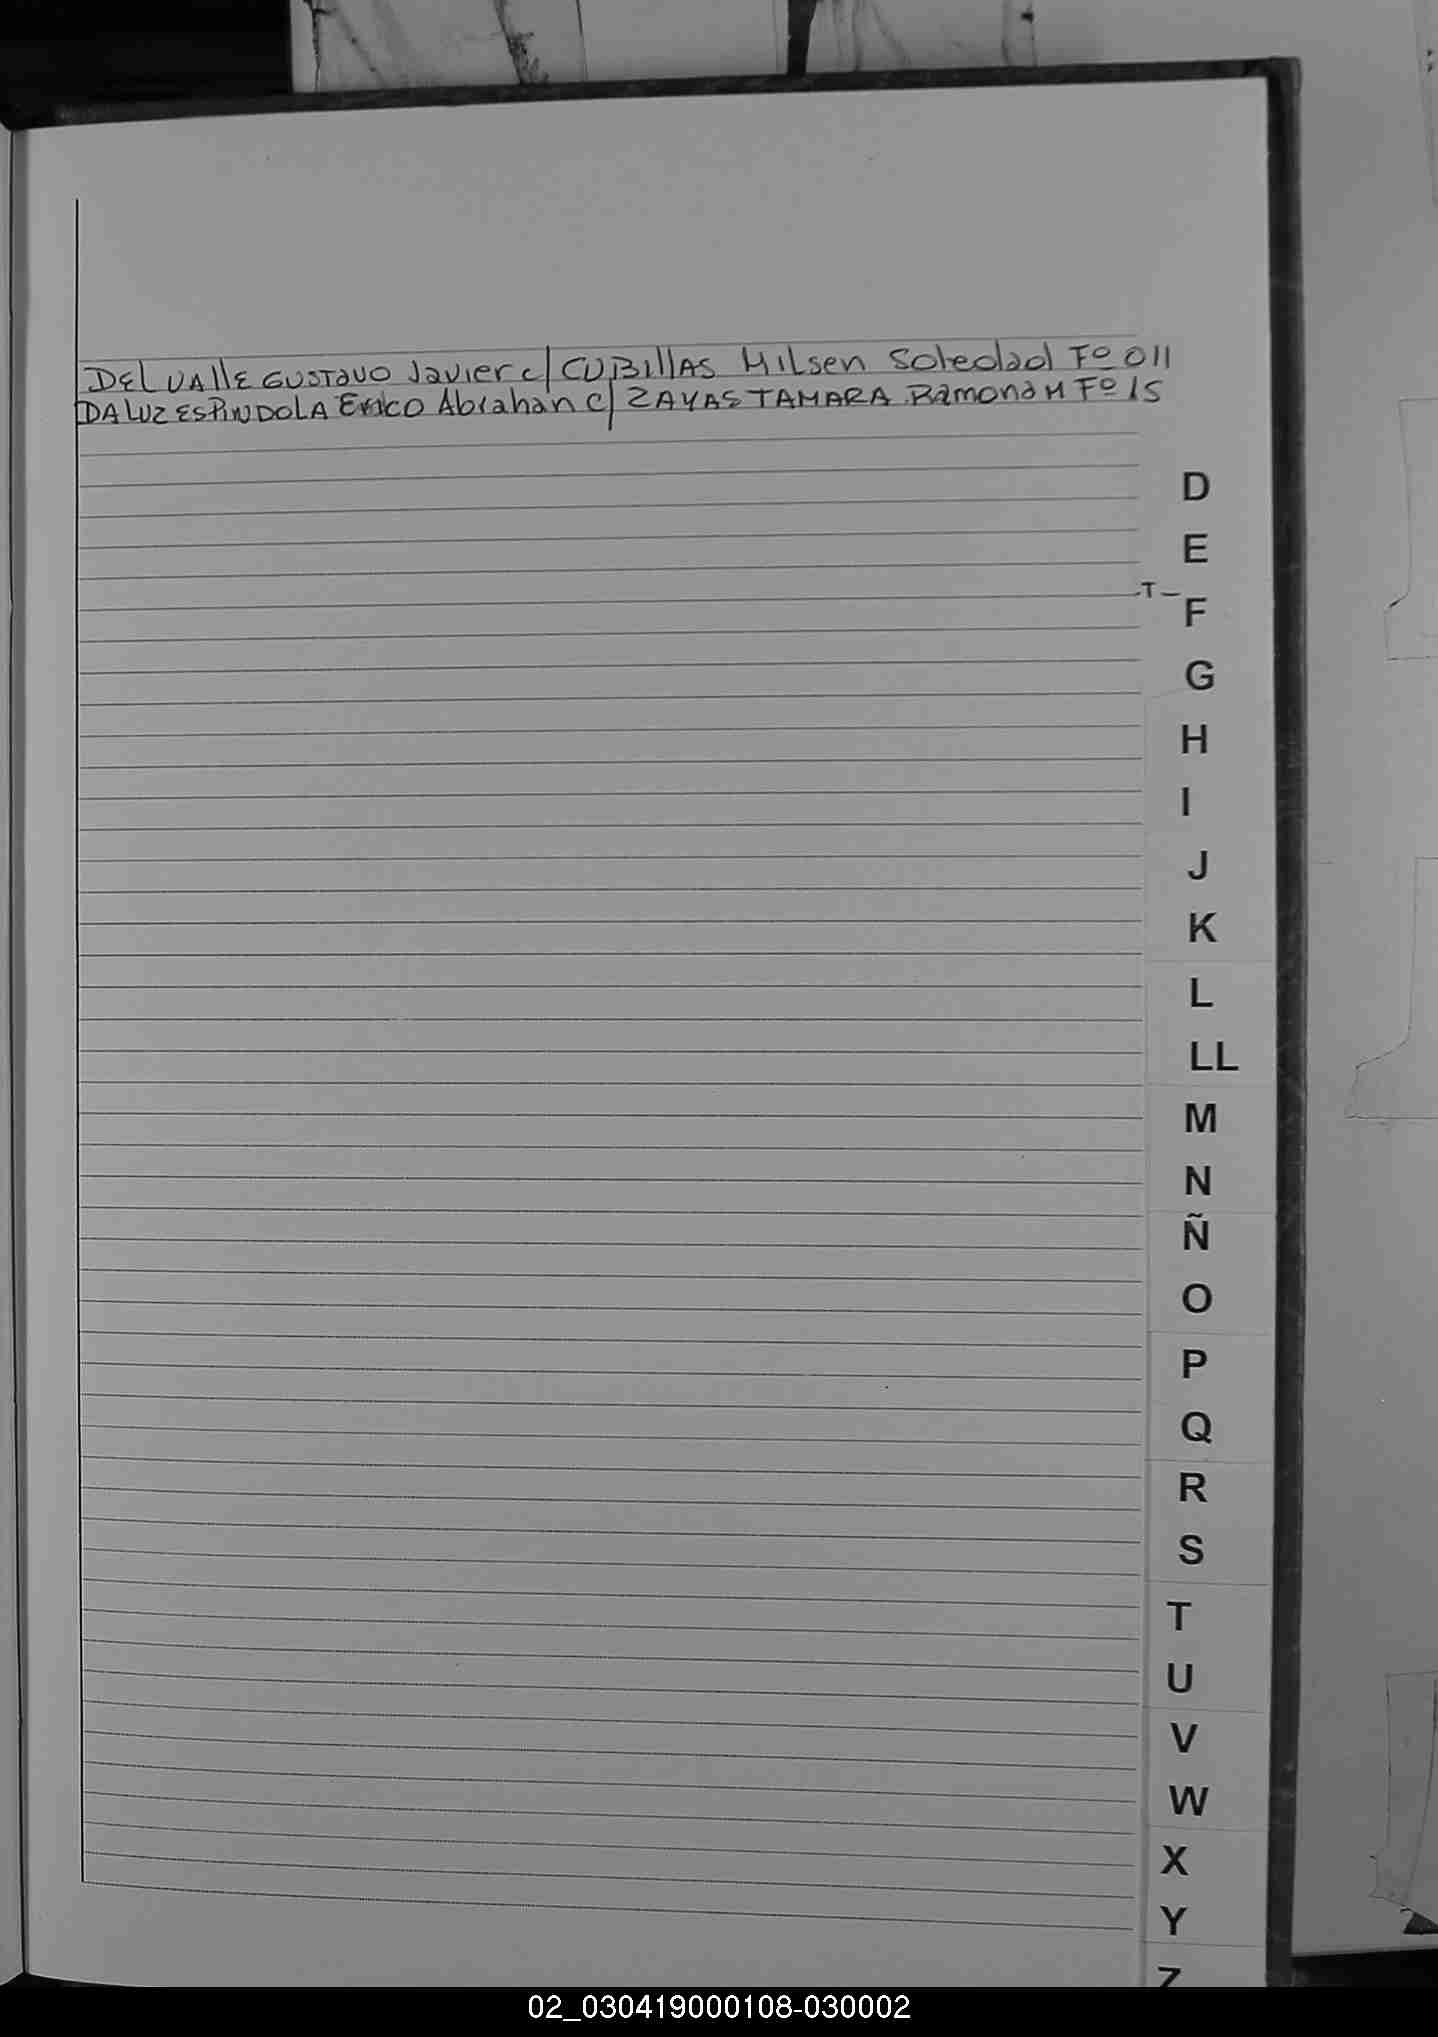 DEL VALLE GUSTAVO Javier c/ CUBILLAS Milsen Soledad Fº 011
DA LUZ ESPINDOLA Erico Abrahan c/ ZAYAS TAMARA Ramona M Fº 15
D
E
T
F
G
H
I
J
K
L
LL
M
N
Ñ
O
P
Q
R
S
T
U
V
W
X
Y
Z
02_030419000108-030002